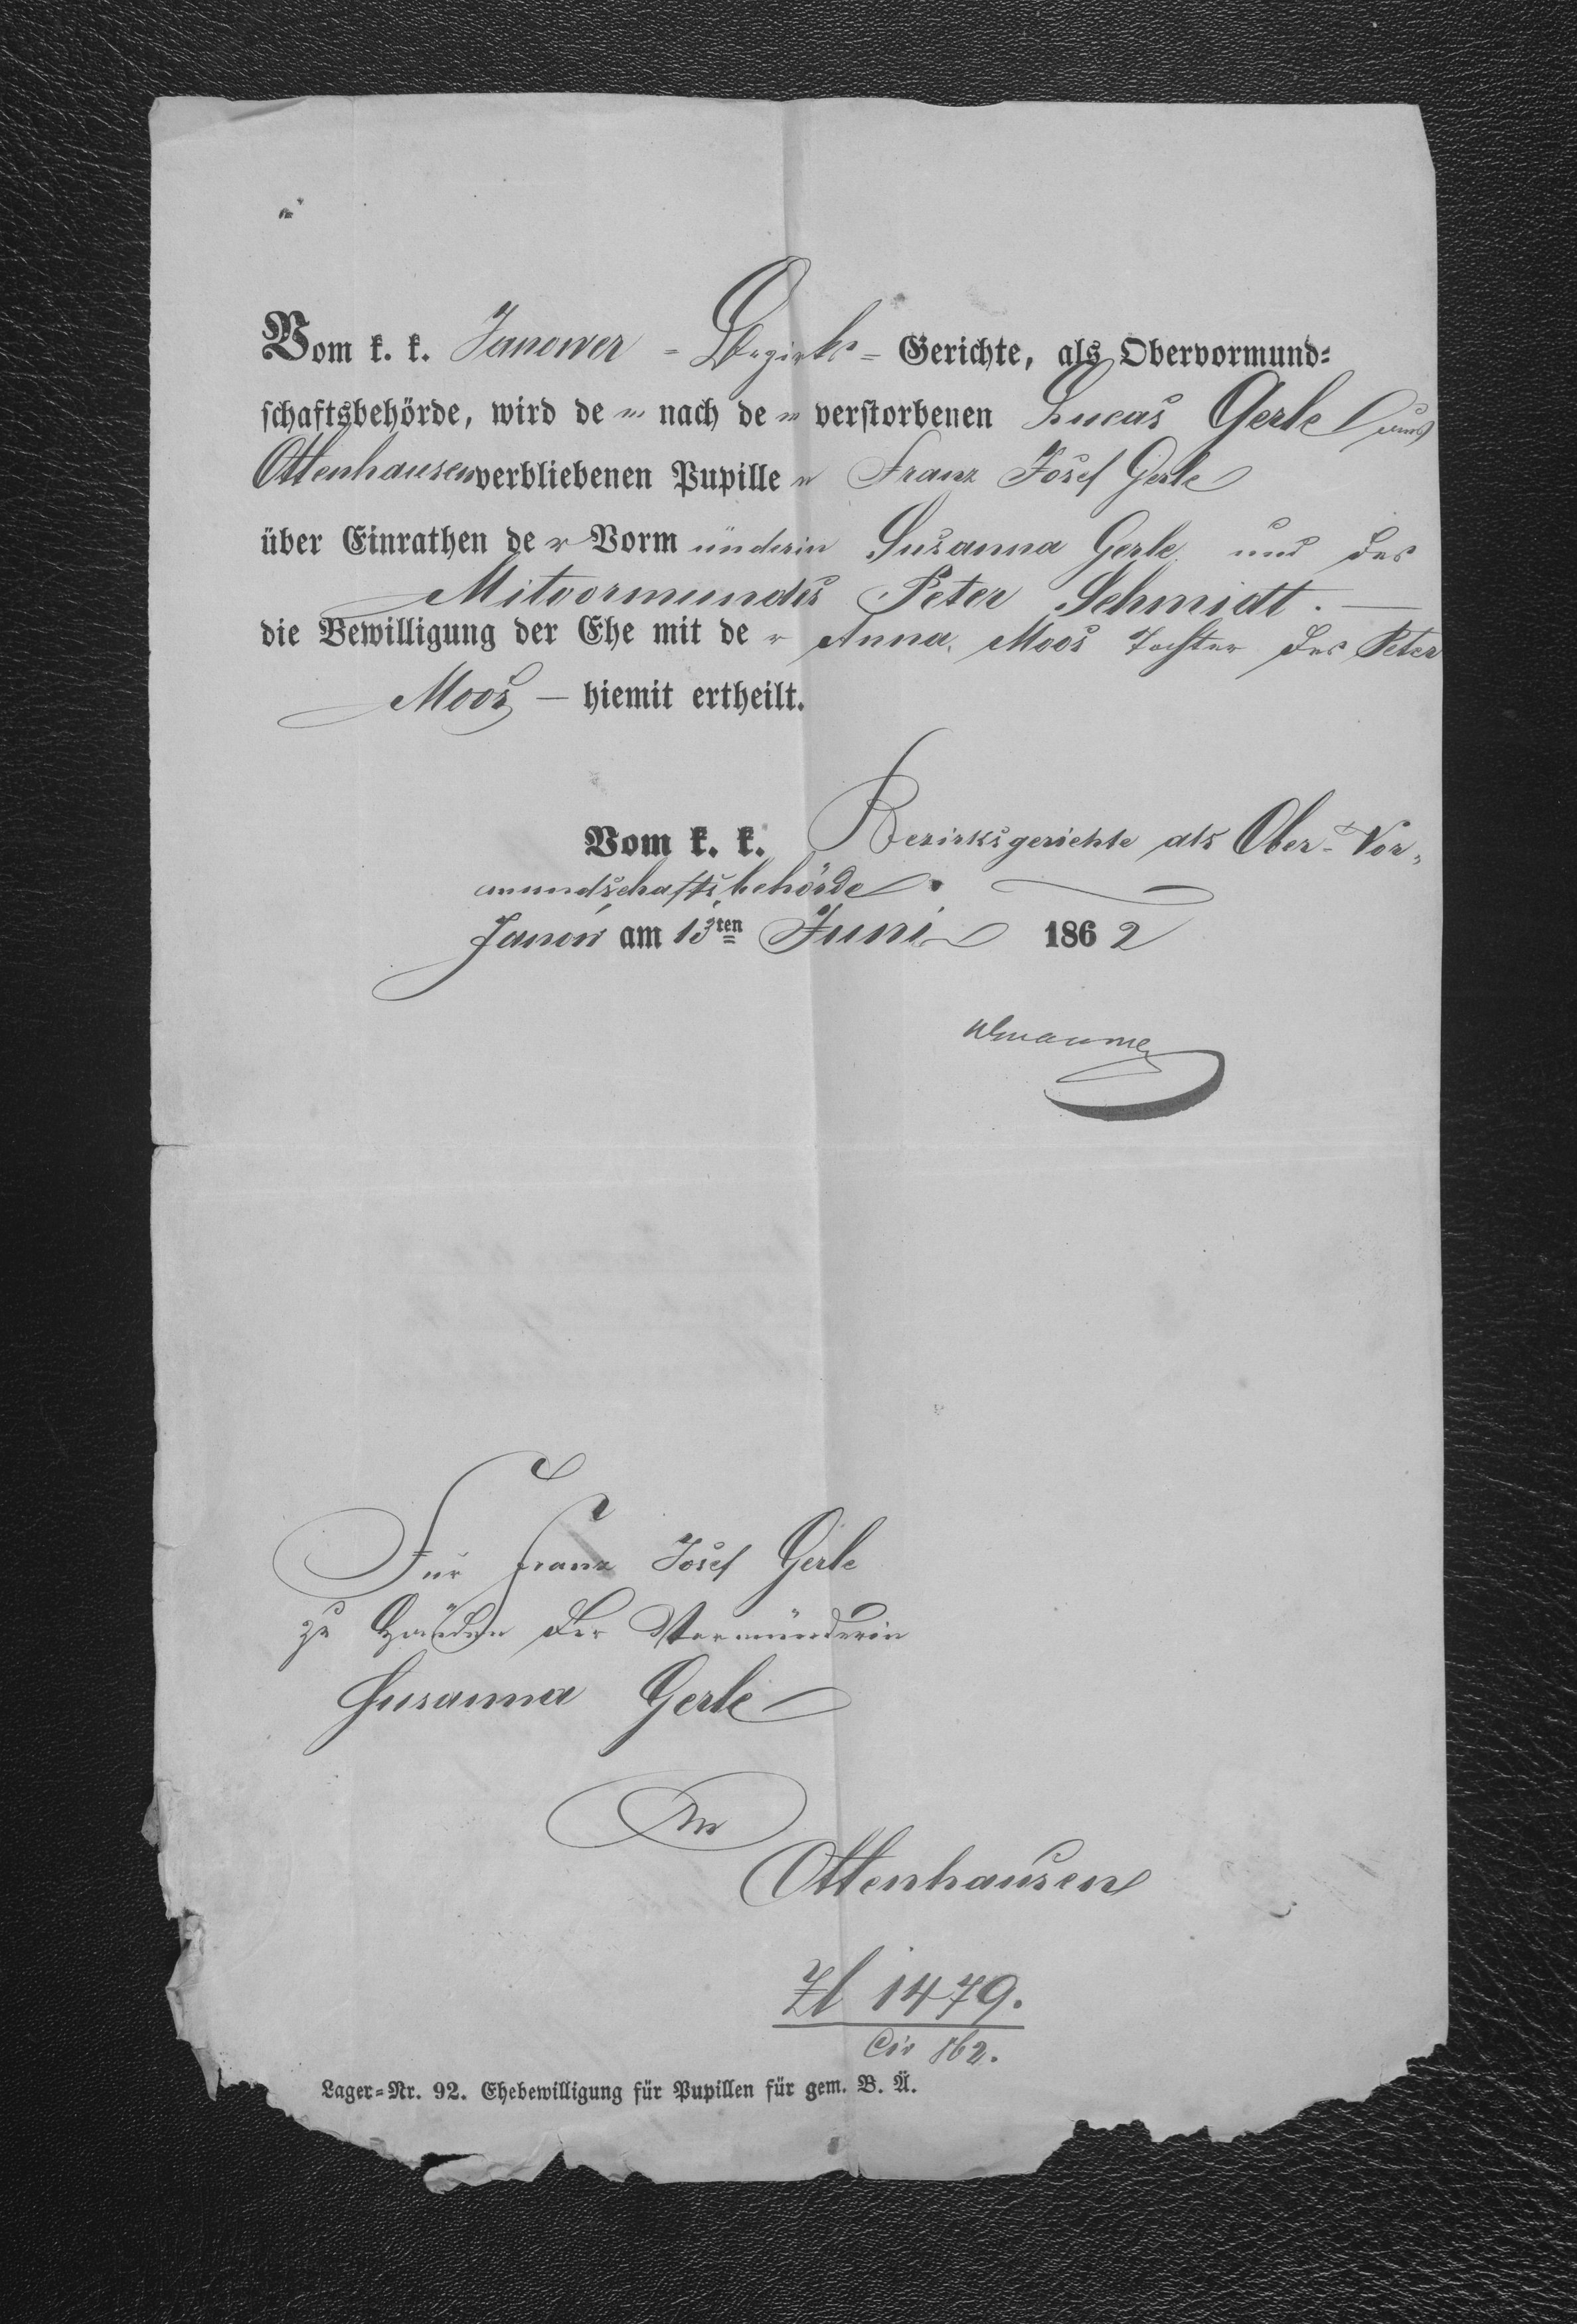 Vom k. k. Janower - Bezirks - Gerichte, als Obervormund-
schaftsbehörde, wird dem nach dem verstorbenen Lucas Gerle aus
Ottenhausen verbliebenen Pupillen Franz Josef Gerle
über Einrathen der Vormünderin Susanna Gerle und des
Mitvormundes Peter Schmidt. —
die Bewilligung der Ehe mit der Anna Moos Tochter des Peter
Moos — hiemit ertheilt.
Vom k. k. Bezirksgerichte als Ober-Vor-
mundschaftsbehörde.
Janów am 13ten Juni 1862
Für Franz Josef Gerle
zu Händen der Vormünderin
Susanna Gerle
in
Ottenhausen
Zl 1479.
Civ 862.
Lager-Nr. 92. Ehebewilligung für Pupillen für gem. B. Ä.